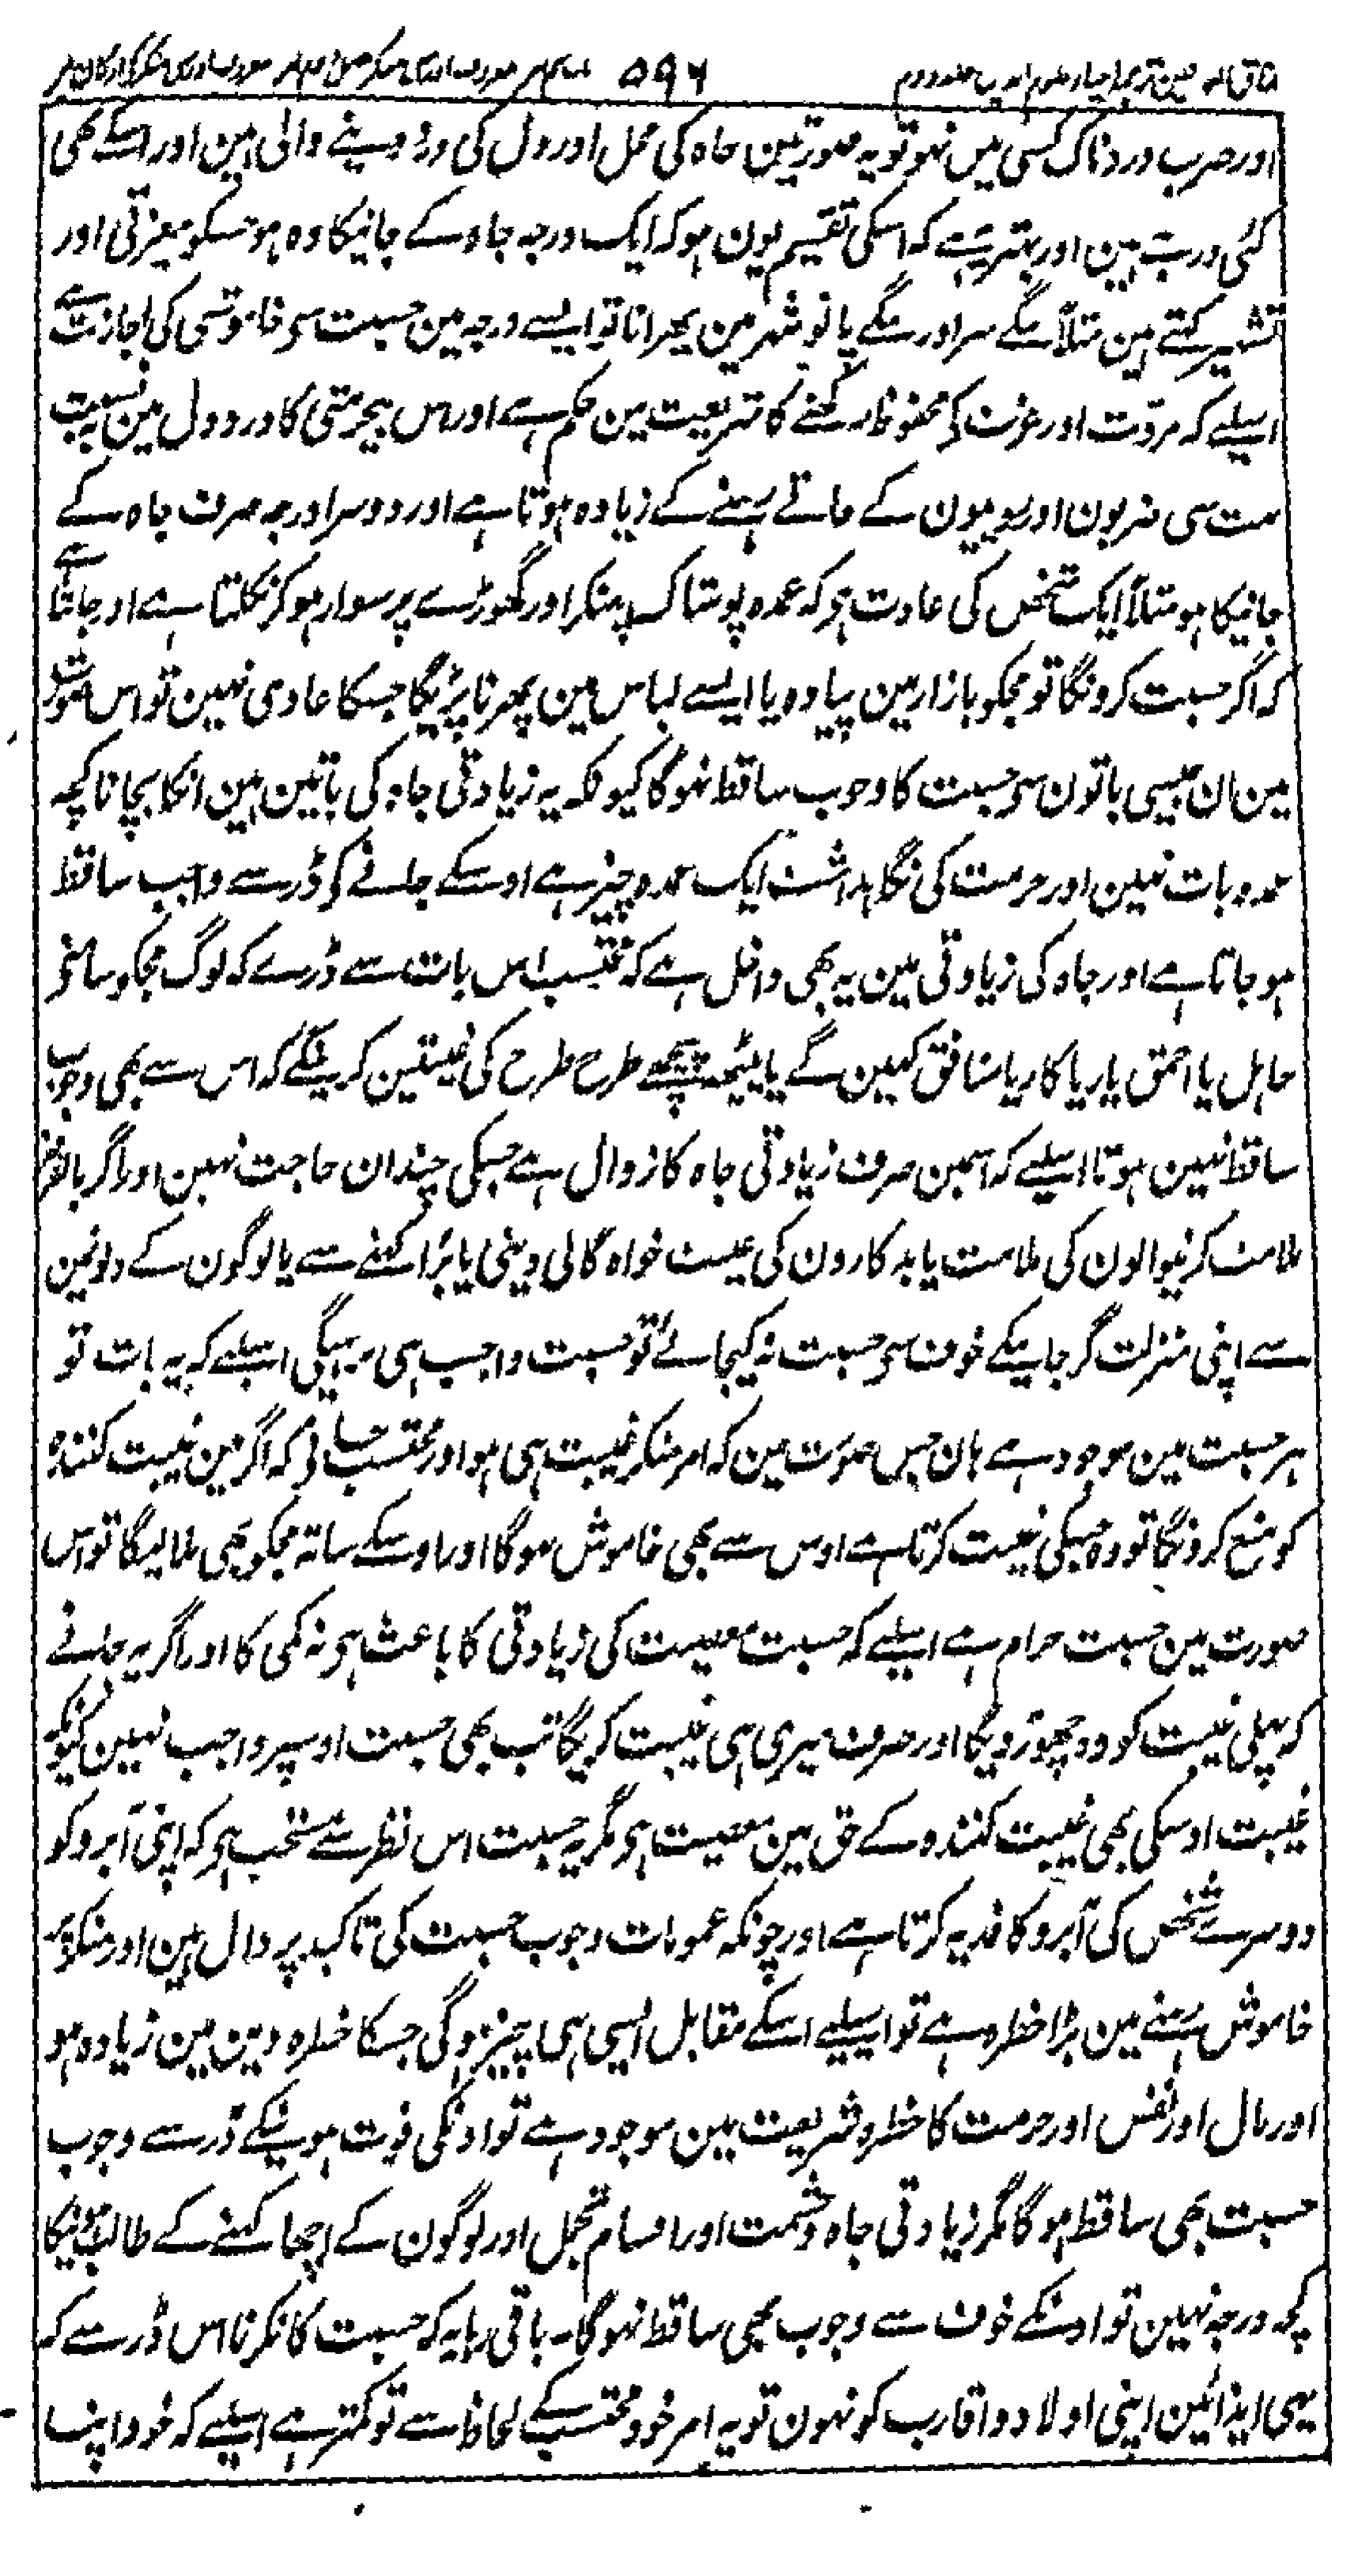 ۵۹۶
اور ضرب دردناک کسی میں نہو تو یہ صورتین جاہ کی مخل اور دل کی درد دینے والی ہین اور اسکے بھی
کئی درجے ہین اور بہتر یہ ہے کہ اسکی تقسیم یون ہو کہ ایک درجہ جاہ کے جانیکا وہ ہو جسکو بیعزتی اور
تشہیر کہتے ہین مثلاً ننگے سر اور ننگے پانو شہر مین پھرانا تو ایسے درجہ مین حسبت سی خاموشی کی اجازت ہے
اسلیے کہ مروت اور عزت کی محفوظ رکھنے کا شریعت مین حکم ہے اور اس بیحرمتی کا درد دل مین بہ نسبت
بہت سی ضربون اور روپیون کے جاتے رہنے کے زیادہ ہوتا ہے اور دوسرا درجہ صرف جاہ کے
جانیکا ہو مثلاً ایک شخص کی عادت ہی کہ عمدہ پوشاک پہنکر اور گھوڑے پر سوار ہو کر نکلتا ہے اور جانتا ہے
کہ اگر حسبت کرونگا تو مجکو بازار مین پیادہ یا ایسے لباس مین پھرنا پڑیگا جسکا عادی نہین تو اس صورت
مین ان جیسی باتون سی حسبت کا وجوب ساقط نہوگا کیونکہ یہ زیادتی جاہ کی باتین ہین انکا بچانا کچھ
عمدہ بات نہین اور حرمت کی نگاہداشت ایک عمدہ چیز ہے اوسکے جانے کی ڈر سے واجب ساقط
ہو جاتا ہے اور جاہ کی زیادتی مین یہ بھی داخل ہے کہ محتسب اس بات سے ڈرے کہ لوگ مجکو سامنے
جاہل یا احمق یا ریاکار یا منافق کہین گے یا پیٹھ پیچھے طرح طرح کی غیبتین کرینگے کہ اس سے بھی وجوب
ساقط نہین ہوتا اسلیے کہ اسمین صرف زیادتی جاہ کا زوال ہے جسکی چندان حاجت نہین اور اگر بالفرض
ملامت کرنیوالون کی ملامت یا بدکارون کی غیبت خواہ گالی دینی یا بُرا کہنے سے یا لوگون کے دلونمین
سے اپنی منزلت گر جانیکے خوف سی حسبت نہ کیجائے تو حسبت واجب ہی نرہیگی اسلیے کہ یہ بات تو
ہر حسبت مین موجود ہے ہان جس صورت مین کہ امر منکر غیبت ہی ہو اور محتسب جانے کہ اگر مین غیبت کنندہ
کو منع کرونگا تو وہ جسکی غیبت کرتا ہے اوس سے بھی خاموش نہوگا اور اوسکے ساتھ مجکو بھی ملا لیگا تو اس
صورت مین حسبت حرام ہے اسلیے کہ حسبت معصیت کی زیادتی کا باعث ہی نہ کمی کا اور اگر یہ جانے
کہ پہلی غیبت کو وہ چھوڑ دیگا اور صرف میری ہی غیبت کریگا تب بھی حسبت اوسپر واجب نہین کیونکہ
غیبت اوسکی بھی غیبت کنندہ کے حق مین معصیت ہی مگر یہ حسبت اس نظر سے مستحب ہی کہ اپنی آبرو کو
دوسرے شخص کی آبرو کا فدیہ کرتا ہے اور چونکہ عمومات وجوب حسبت کی تاکید پر دال ہین اور منکر پر
خاموش رہنے مین بڑا خطرہ ہے تو اسلیے اسکے مقابل ایسی ہی چیز ہوگی جسکا خطرہ دین مین زیادہ ہو
اور مال اور نفس اور حرمت کا خطرہ شریعت مین موجود ہے تو اونکی فوت ہونیکے ڈر سے وجوب
حسبت بھی ساقط ہوگا مگر زیادتی جاہ و حشمت اور اقسام تجمل اور لوگون کے اچھا کہنے کے طالب ہونیکا
کچھ درجہ نہین تو اونکے خوف سے وجوب بھی ساقط نہوگا۔ باقی رہا یہ کہ حسبت کا نکرنا اس ڈر سے کہ
یہی ایذائین اپنی اولاد و اقارب کو نہون تو یہ امر خود محتسب کے لحاظ سے تو کمتر ہے اسلیے کہ خود اپنے